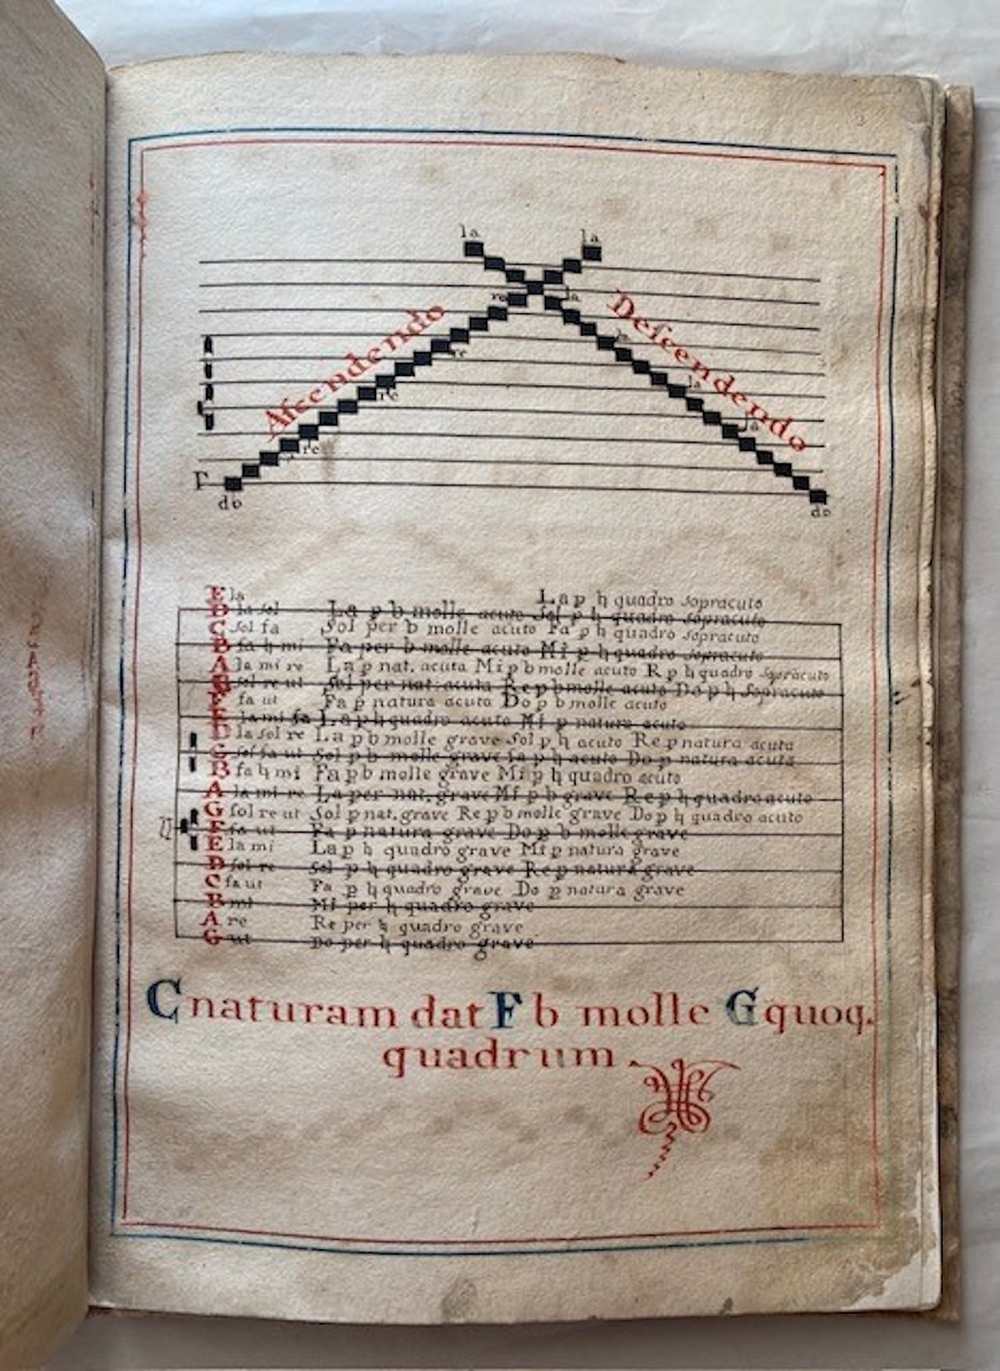 la la
re la
Ascendendo
Descendendo
re la
re la
re la
Γ
do do
E la La p ♮ quadro sopracuto
D la sol La p b molle acuto Sol p ♮ quadro sopracuto
C sol fa Sol per b molle acuto Fa p ♮ quadro sopracuto
B fa ♮ mi Fa per b molle acuto Mi p ♮ quadro sopracuto
A la mi re La p nat. acuta Mi p b molle acuto R p ♮ quadro sopracuto
G sol re ut Sol per nat: acuta Re p b molle acuto Do p ♮ sopracuto
F fa ut Fa p natura acuta Do p b molle acuto
E la mi fa La p ♮ quadro acuto Mi p natura acuto
D la sol re La p b molle grave Sol p ♮ acuto Re p natura acuta
C sol fa ut Sol p b molle grave fa p ♮ acuto Do p natura acuta
B fa ♮ mi Fa p b molle grave Mi p ♮ quadro acuto
A la mi re La per nat. grave Mi p b grave Re p ♮ quadro acuto
G sol re ut Sol p nat. grave Re p b molle grave Do p ♮ quadro acuto
F fa ut Fa p natura grave Do p b molle grave
E la mi La p ♮ quadro grave Mi p natura grave
D sol re Sol p ♮ quadro grave Re p natura grave
C fa ut Fa p ♮ quadro grave Do p natura grave
B mi Mi per ♮ quadro grave
A re Re per ♮ quadro grave
G ut Do per ♮ quadro grave
C naturam dat F b molle G quoq.
quadrum